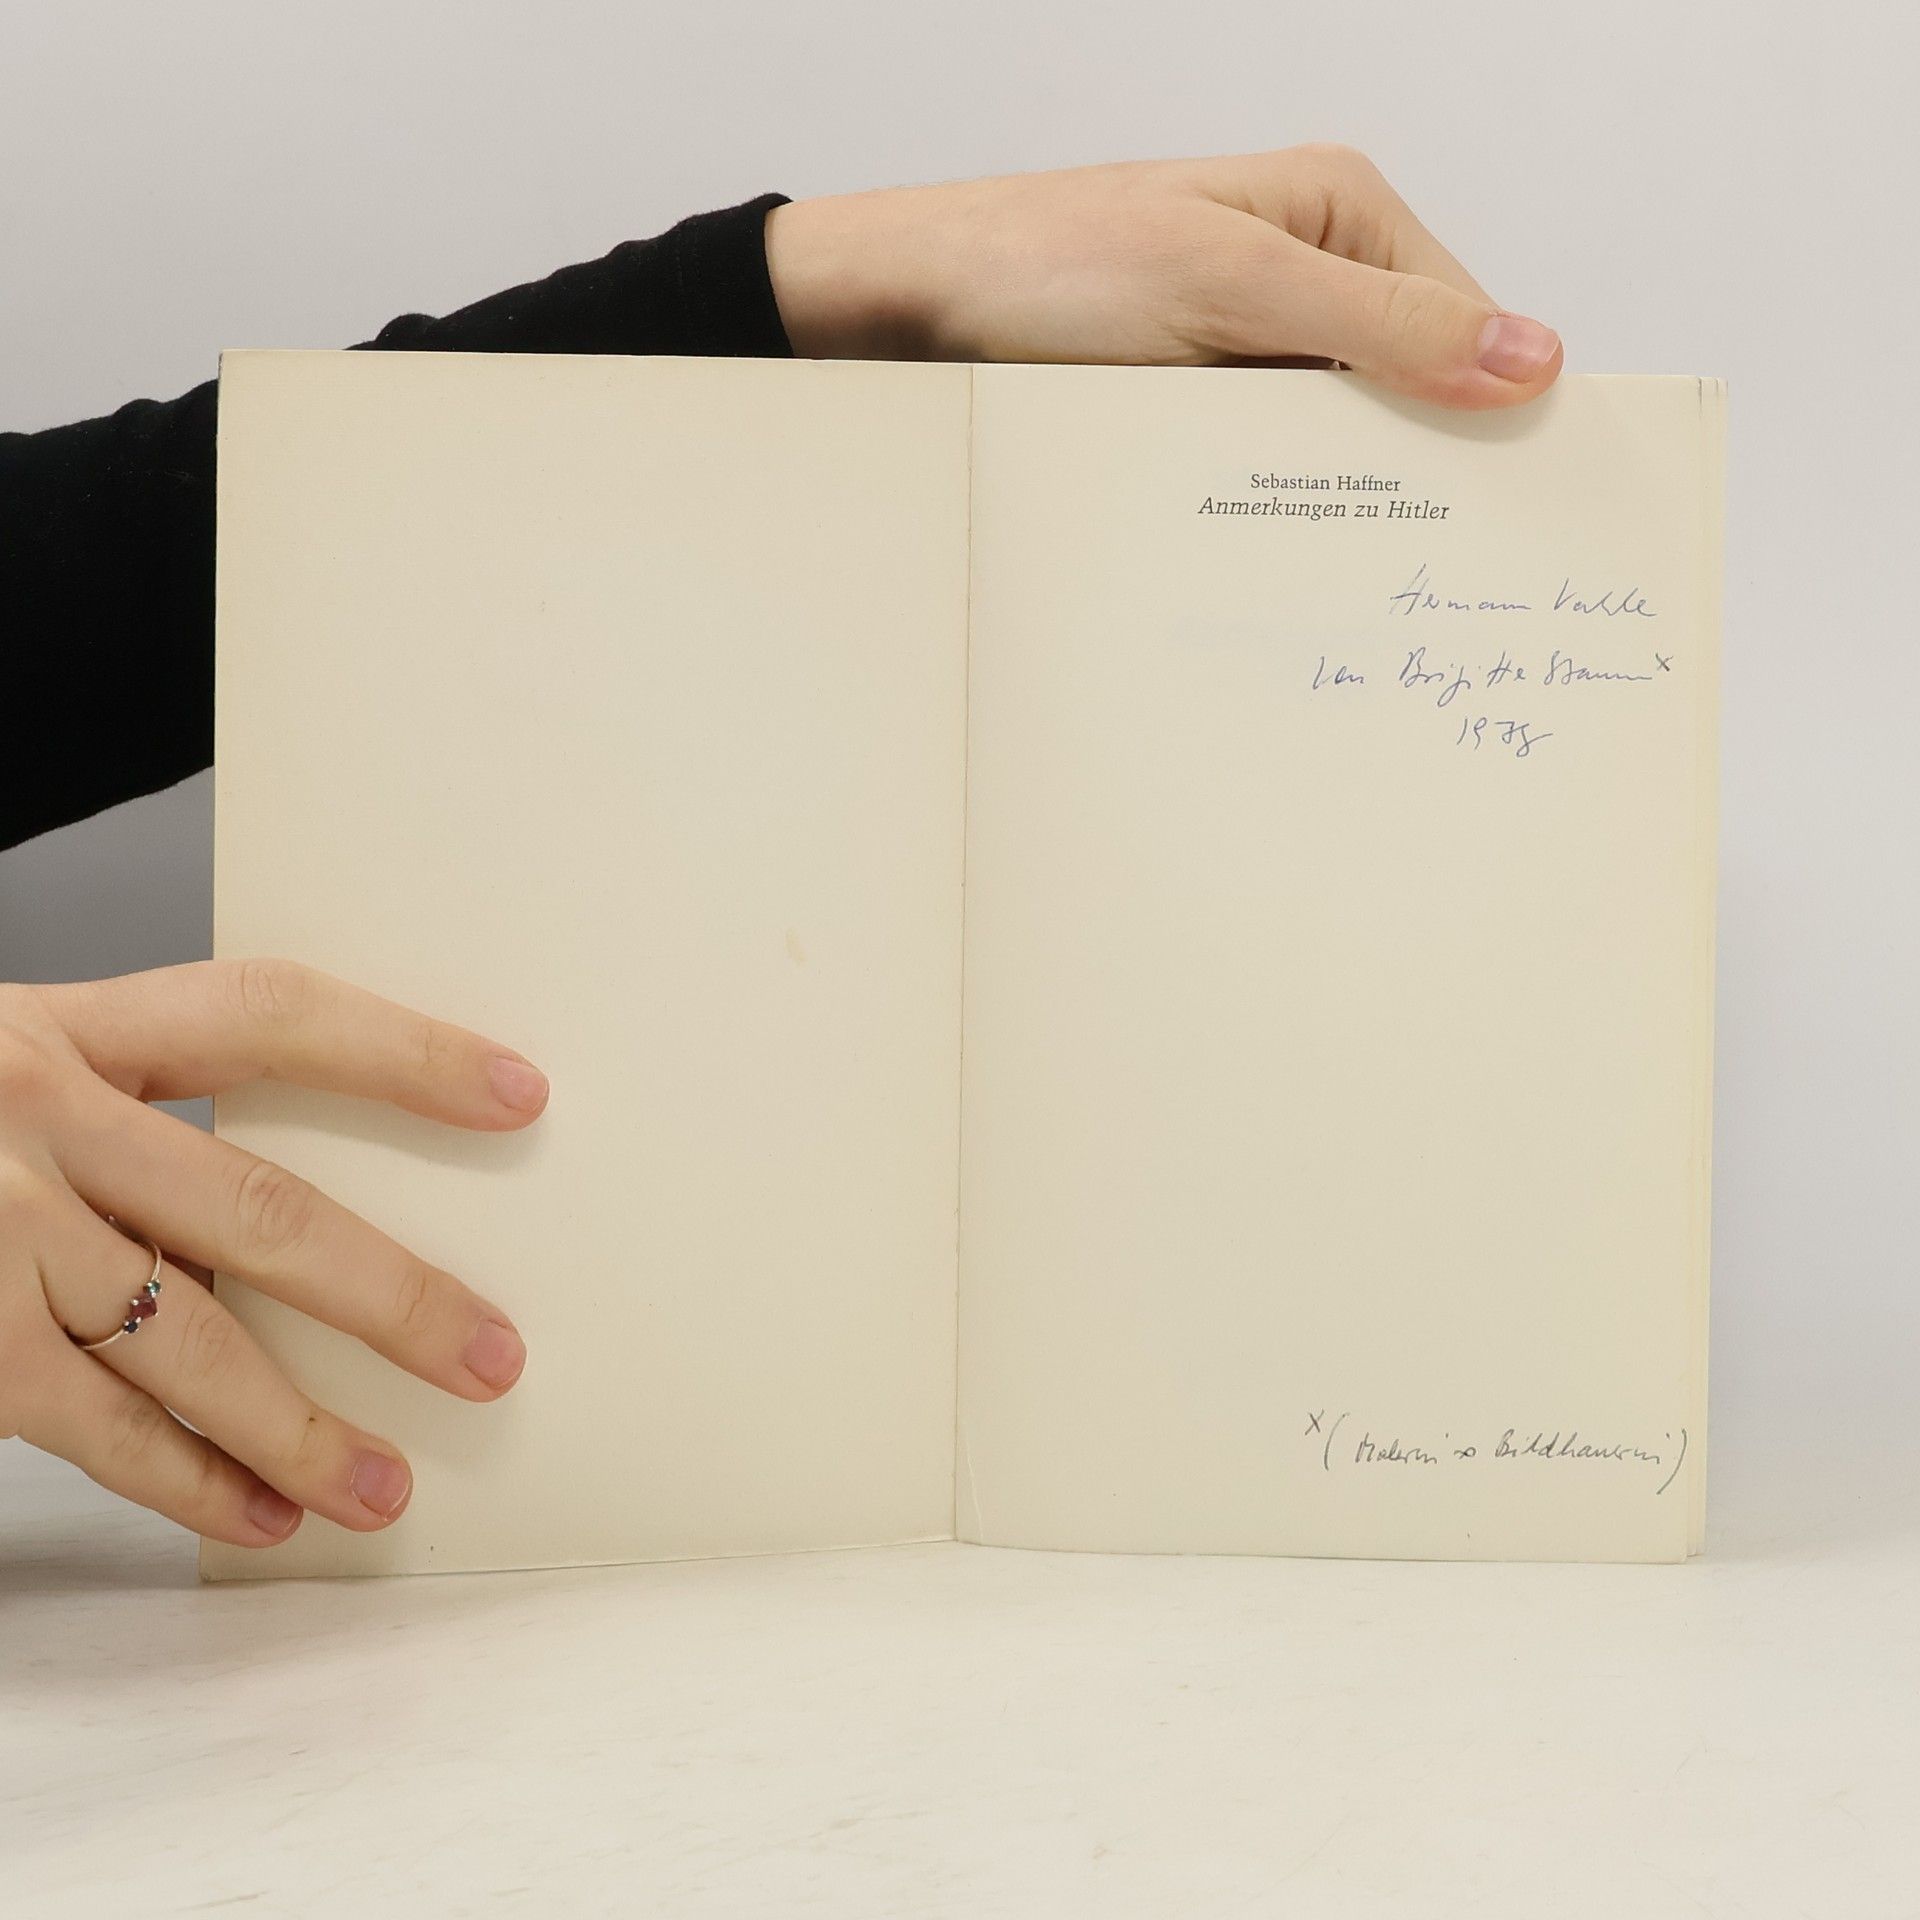 Sebastian Haffner
Anmerkungen zu Hitler
Hermann Vahle
von Brigitte Stamm x
1978
x (Malerin Bildhauerin)